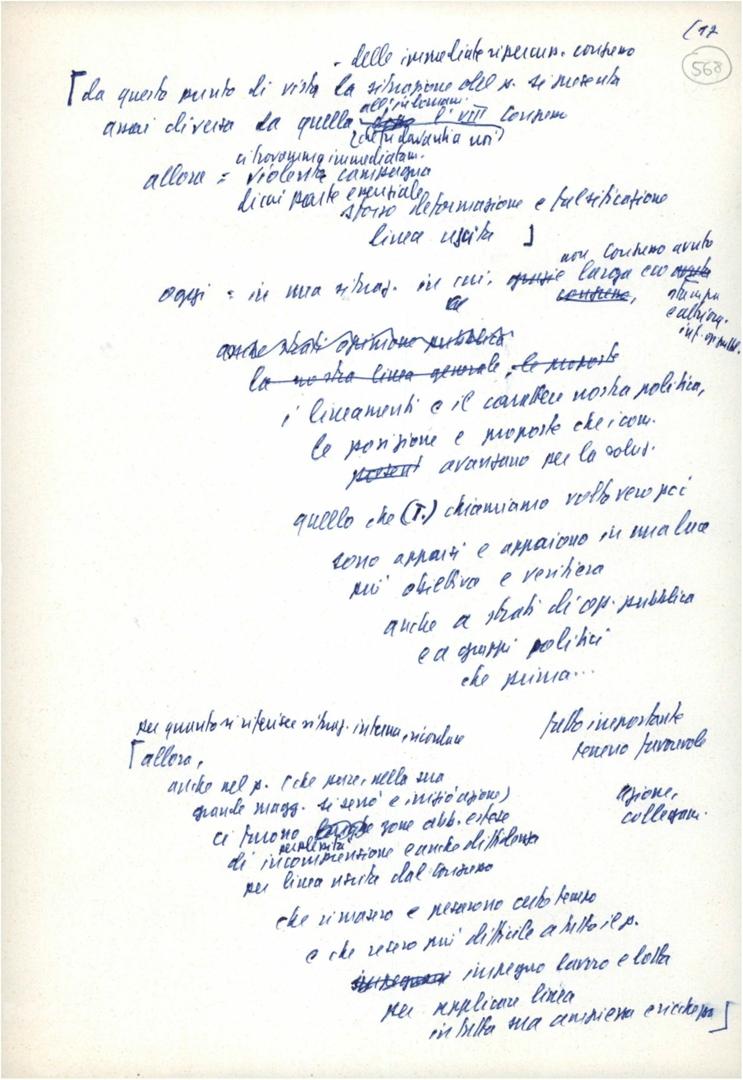 (17
568
- delle immediate ripercuss. congresso
[da questo punto di vista la situazione del p. si presenta
assai diversa da quella all'indomani
dopo l'VIII Congresso
(che fu davanti a noi)
ci trovammo immediatam.
allora = violenta campagna
di cui parte essenziale
sforzo deformazione e falsificazione
linea uscita ]
non Congresso avuto
oggi = in una situaz. in cui, grazie larga eco
congresso, stampa
e altri org.
inf. op. pubbl.
anche strati opinione pubblica
la nostra linea generale, le proposte
i lineamenti e il carattere nostra politica,
le posizione e proposte che i com.
present avanzano per la soluz.
quello che (T.) chiamiamo volto vero pci
sono apparsi e appaiono in una luce
più obiettiva e veritiera
anche a strati di op. pubblica
e a gruppi politici
che prima...
per quanto si riferisce situaz. interna, ricordare
fatto importante
terreno favorevole
[allora,
anche nel p. (che pure, nella sua
grande magg. si serrò e iniziò azione)
azione,
collegam.
ci furono larghe zone abb. estese
perplessità
di incomprensione e anche diffidenza
per linea uscita dal Congresso
che rimasero e pesarono certo tempo
e che resero più difficile a tutto il p.
impegno impegno lavoro e lotta
per applicare linea
in tutta sua ampiezza e ricchezza]